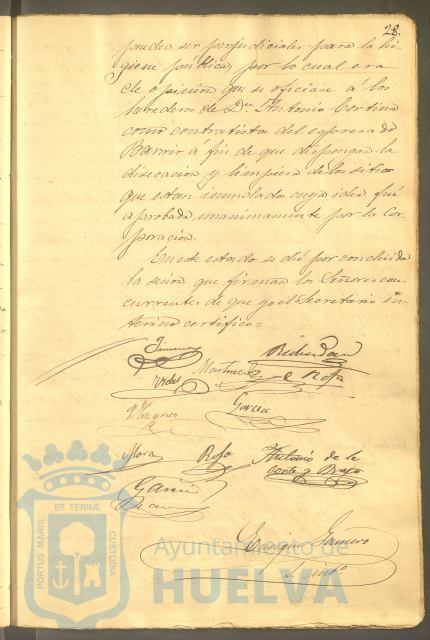 28.
puedan ser perjudiciales para la hi
giene pública, por lo cual era
de opinion que se oficiase á los
herederos de Dn. Antonio Cortina
como contratista del espresado
Barrio á fin de que dispongan la
disecacion y limpieza de los sitios
que estan inundados cuya idea fué
aprobada unanimamente por la Cor-
poracion.
En este estado se dió por concluida
la sesion que firman los Señores con-
currentes de que yo el Secretario in-
terino certifico=
Jimenez
Martinez de la Rosa
Vazquez Garcia
Mora Rofo Antonio de la
Corte y Bravo
Garcia
PORTUS MARIS ET TERRÆ CUSTODIA
Ayuntamiento de
HUELVA